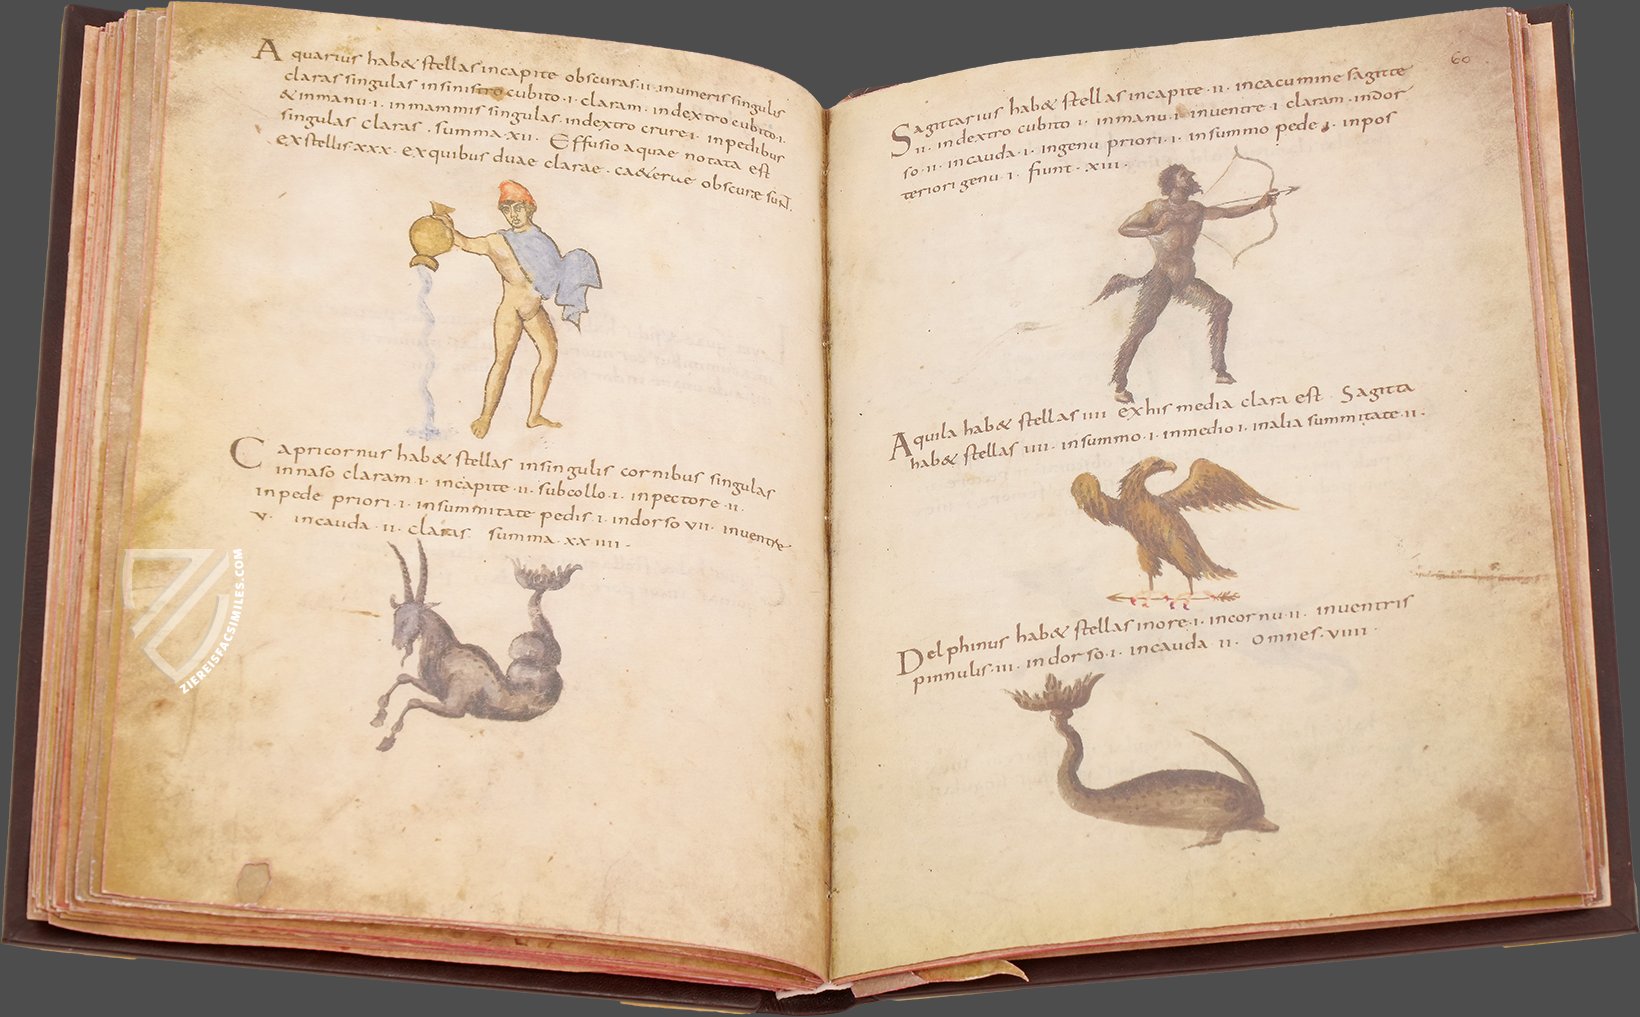 Aquarius hab& stellas incapite obscuras ·ii· inumeris singulis
claras singulas insinistro cubito ·i· claram · indextro cubito ·i·
&inmanu ·i· inmammis singulas · indextro crure ·i· inpedibus
singulas claras · summa · xii · Effusio aquae notata est
exstellis xxx · exquibus duae clarae · ca&erae obscurae sun̄.
Capricornus hab& stellas insingulis cornibus singulas
innaso claram ·i· incapite ·ii· subcollo ·i· inpectore ·ii·
inpede priori ·i· insummitate pedis ·i· indorso vii · inventre
v · incauda ·ii· claras summa · xxiiii ·
60
Sagittarius hab& stellas incapite ·ii· incacumine sagitte
ii · indextro cubito i · inmanu ·i· inventre ·i· claram · indor
so ·ii· incauda ·i· ingenu priori ·i· insummo pede ·i· inpos
teriori genu ·i· fiunt · xiii ·
Aquila hab& stellas iiii exhis media clara est Sagitta
hab& stellas iiii · insummo ·i· inmedio i · inalia summitate ·ii·
Delphinus hab& stellas inore ·i· incornu ·ii· inventris
pinnulis ·iii· indorso ·i· incauda ii · omnes · viiii ·
ZIEREISFACSIMILES.COM